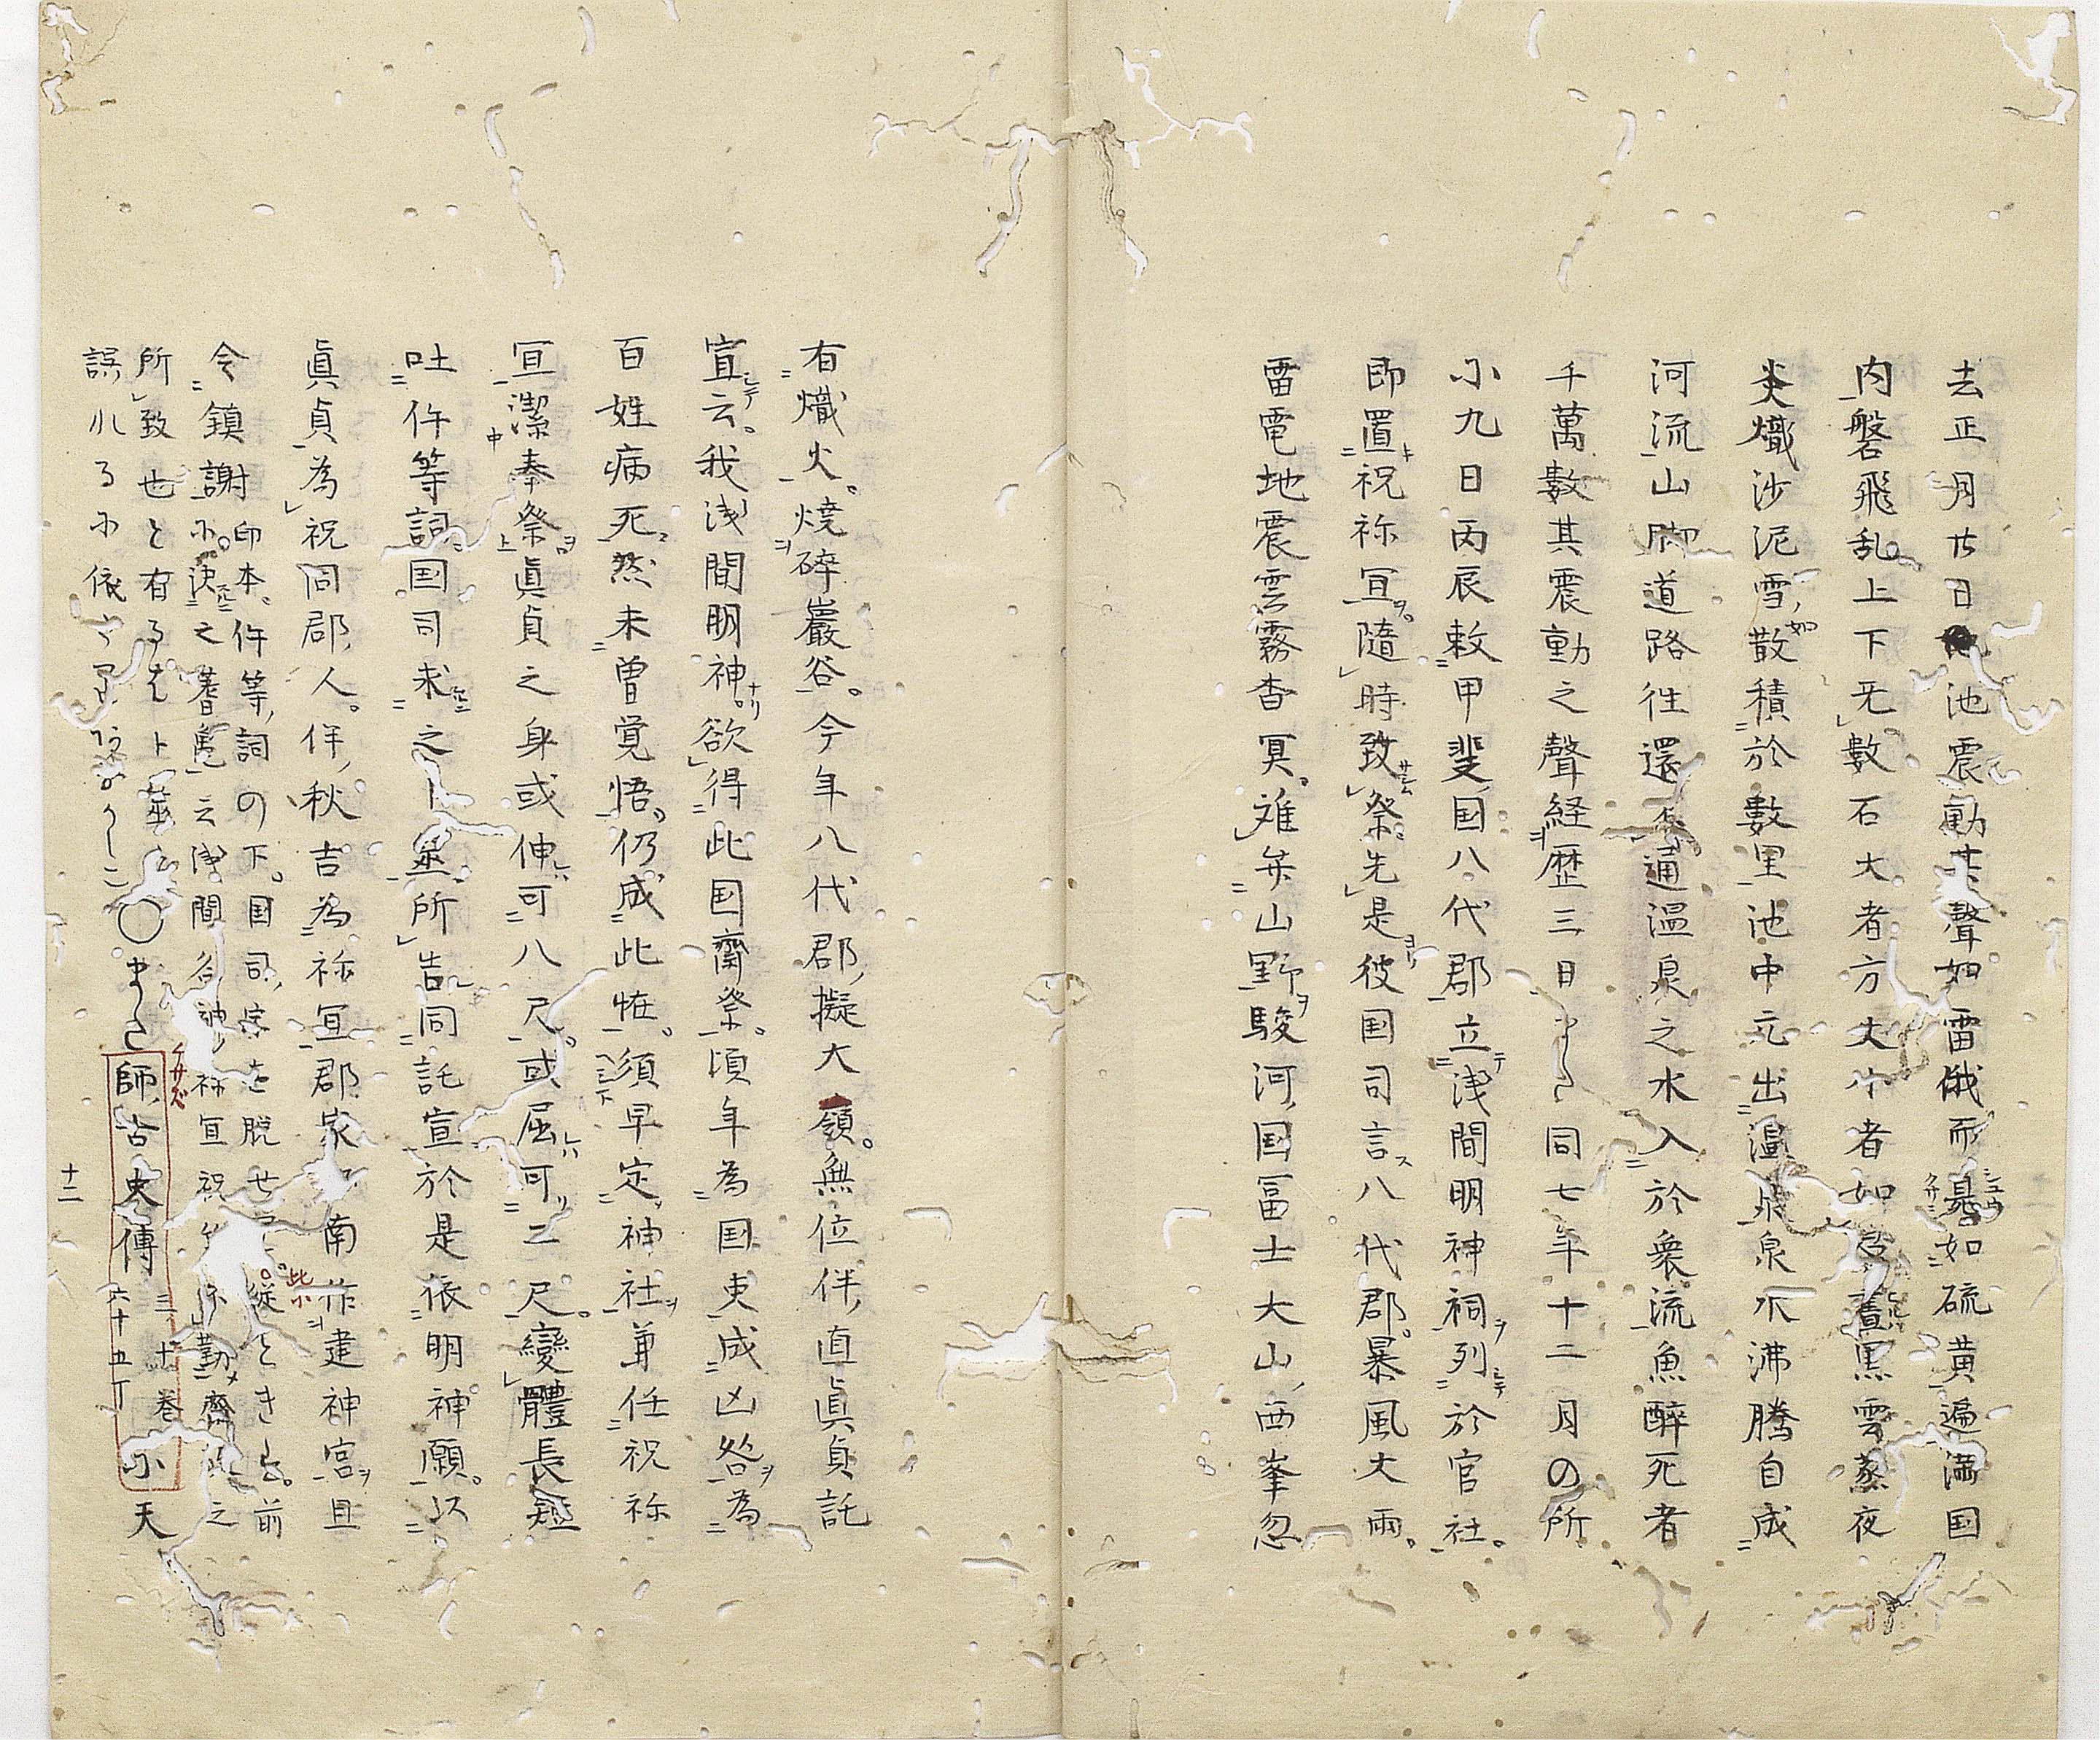 去正月廿日池震動其聲如雷俄而晃如硫黄遍満国
内磐飛乱上下无數石大者方丈小者如
黒雲蒸夜
炎熾沙泥雪散積於數里池中元出温泉泉水沸騰自成
河流山脚道路往還不通温泉之水入於衆流魚醉死者
千萬數其震動之聲経歴三日
同七年十二月の所
小九日丙辰敕甲斐国八代郡立浅間明神祠列於官社
即置祝祢冝隨時致祭先是彼国司言八代郡暴風大雨
雷電地震雲霧杳冥难弁山野駿河国冨士大山西峯忽
有熾火焼碎巖谷今年八代郡擬大領無位伴直眞貞託
宣云我浅間明神欲得此国齋祭頃年為国吏成凶咎為
百姓病死然未曽覚悟仍成此恠須早定神社兼任祝祢
冝潔奉祭眞貞之身或伸可八尺或屈可二尺變體長短
吐件等詞国司求之卜筮所告同託宣於是依明神願以
眞貞為祝同郡人伴秋吉為祢冝郡家南作建神宮且
令鎮謝
印本件等詞の下国司
を脱せ
従ときを前
小決之蓍亀云浅間名神祢冝祝
勤齋
之
所致也と有るは卜筮
誤れるに依
○
師古史傳
三十巻
六十五丁
小天
十二